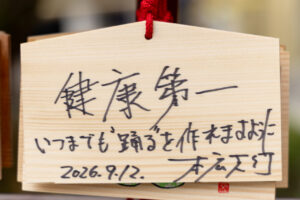 健康第一
いつまでも“踊る”を作れますように
2026.9.12.